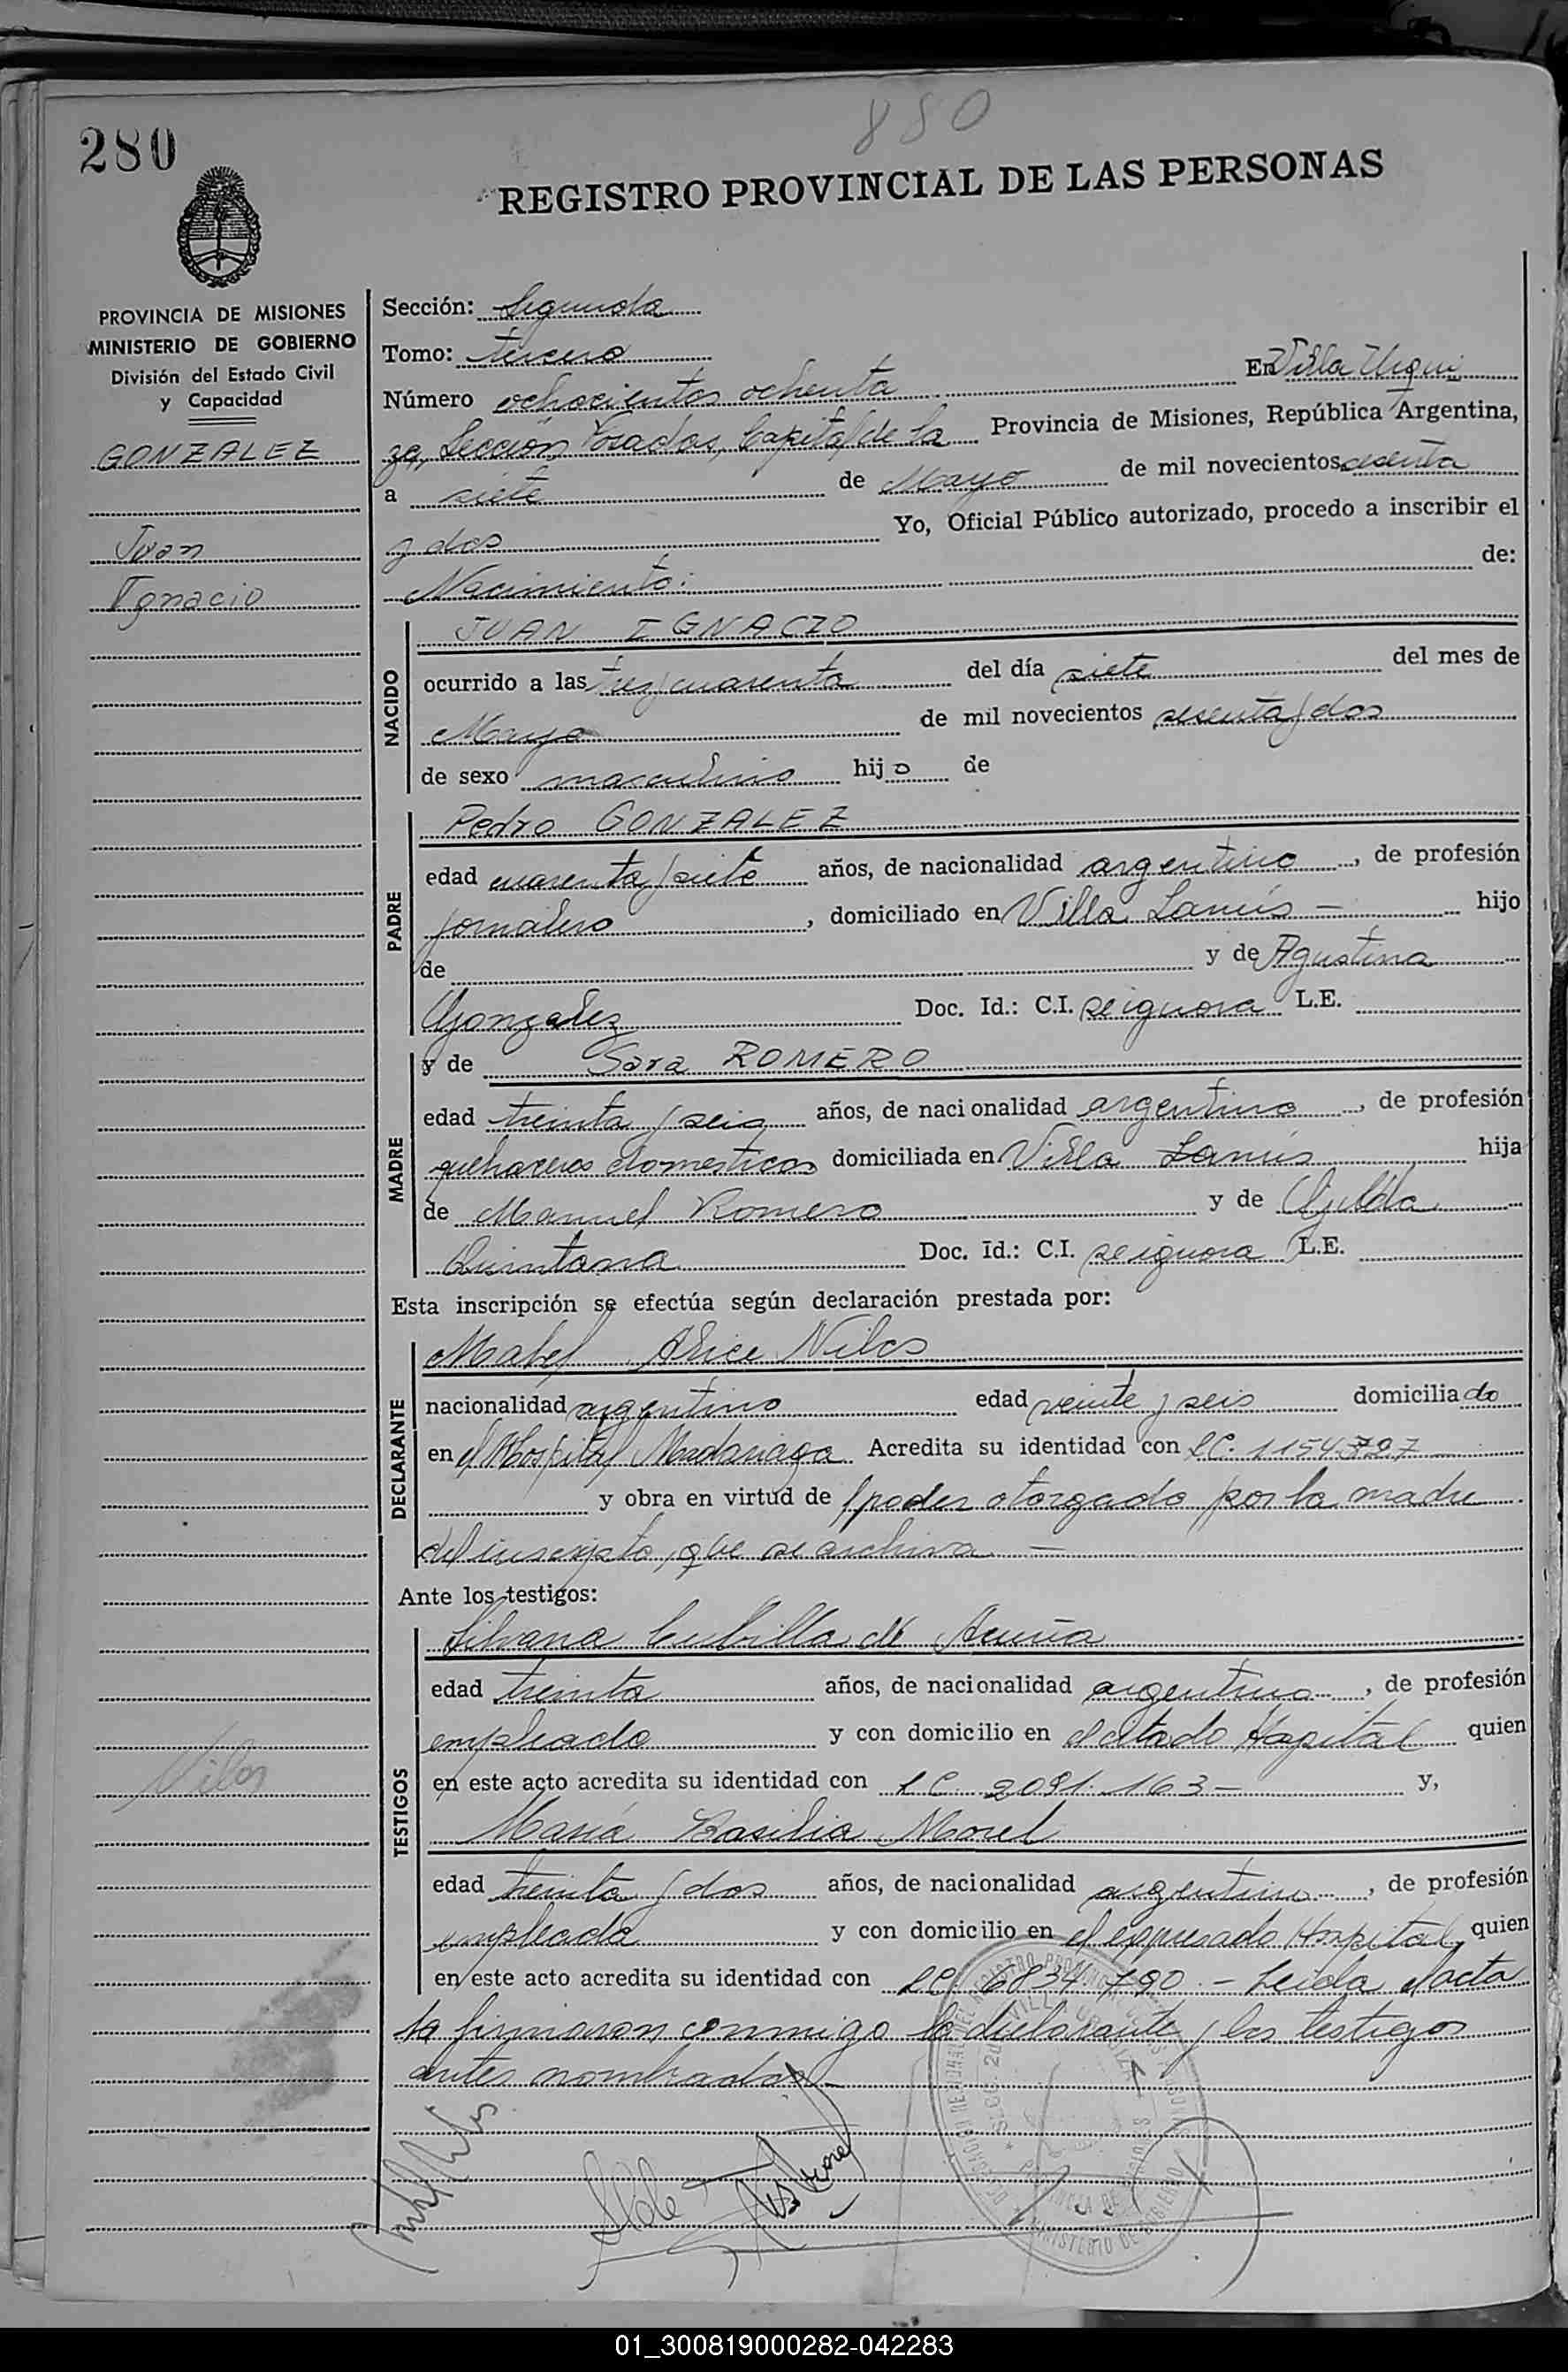 880
280
REGISTRO PROVINCIAL DE LAS PERSONAS
PROVINCIA DE MISIONES
MINISTERIO DE GOBIERNO
División del Estado Civil
y Capacidad
GONZALEZ
Juan
Ignacio
Sección: Segunda
Tomo: tercero
Número ochocientos ochenta En Villa Urqui
za, Sección Posadas, Capital de la Provincia de Misiones, República Argentina,
a siete de Mayo de mil novecientos sesenta
y dos Yo, Oficial Público autorizado, procedo a inscribir el
Nacimiento: de:
NACIDO
JUAN IGNACIO
ocurrido a las tres y cuarenta del día siete del mes de
Mayo de mil novecientos sesenta y dos
de sexo masculino hijo de
PADRE
Pedro GONZALEZ
edad cuarenta y siete años, de nacionalidad argentino, de profesión
jornalero, domiciliado en Villa Lanús — hijo
de y de Agustina
Gonzalez Doc. Id.: C.I. se ignora L.E.
MADRE
y de Sara ROMERO
edad treinta y seis años, de nacionalidad argentino, de profesión
quehaceres domesticos domiciliada en Villa Lanús hija
de Manuel Romero y de
Quintana Doc. Id.: C.I. se ignora L.E.
Esta inscripción se efectúa según declaración prestada por:
DECLARANTE
Mabel Alice Nilos
nacionalidad argentino edad veinte y seis domiciliado
en el Hospital Madariaga Acredita su identidad con L.C. 1154.727
y obra en virtud de poder otorgado por la madre
del inscripto, que se archiva —
Ante los testigos:
TESTIGOS
Silvana Cubilla de Acuña
edad treinta años, de nacionalidad argentino, de profesión
empleado y con domicilio en el citado Hospital quien
en este acto acredita su identidad con L.C. 2091.163 — y,
María Basilia Morel
edad treinta y dos años, de nacionalidad argentino, de profesión
empleada y con domicilio en el expresado Hospital, quien
en este acto acredita su identidad con L.C. 6834.790. — Leída el acta
la firmaron conmigo la declarante y los testigos
antes nombrados. —
Nilos
01_300819000282-042283